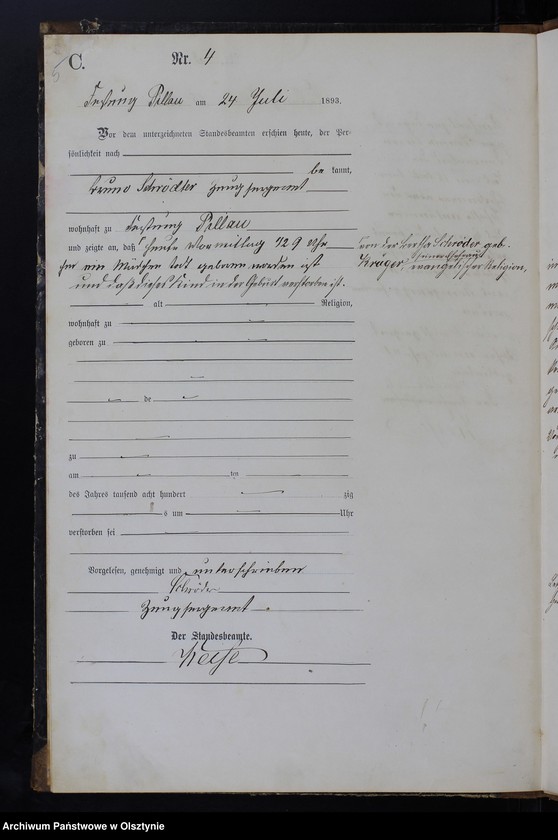 C.
Nr. 4
Festung Pillau am 24 Juli 1893.
Vor dem unterzeichneten Standesbeamten erschien heute, der Per-
sönlichkeit nach
be kannt,
Bruno Schrödter Zeugsergeant
wohnhaft zu Festung Pillau
und zeigte an, daß heute Vormittag 1/2 9 Uhr von der Schröder geb.
Krüger, evangelischer Religion,
ein Mädchen todt geboren worden ist
und daß dieses Kind in der Geburt verstorben ist.
alt Religion,
wohnhaft zu
geboren zu
de
zu
am ten
des Jahres tausend acht hundert zig
s um Uhr
verstorben sei
Vorgelesen, genehmigt und unterschrieben
Schröder
Zeugsergeant
Der Standesbeamte.
Archiwum Państwowe w Olsztynie